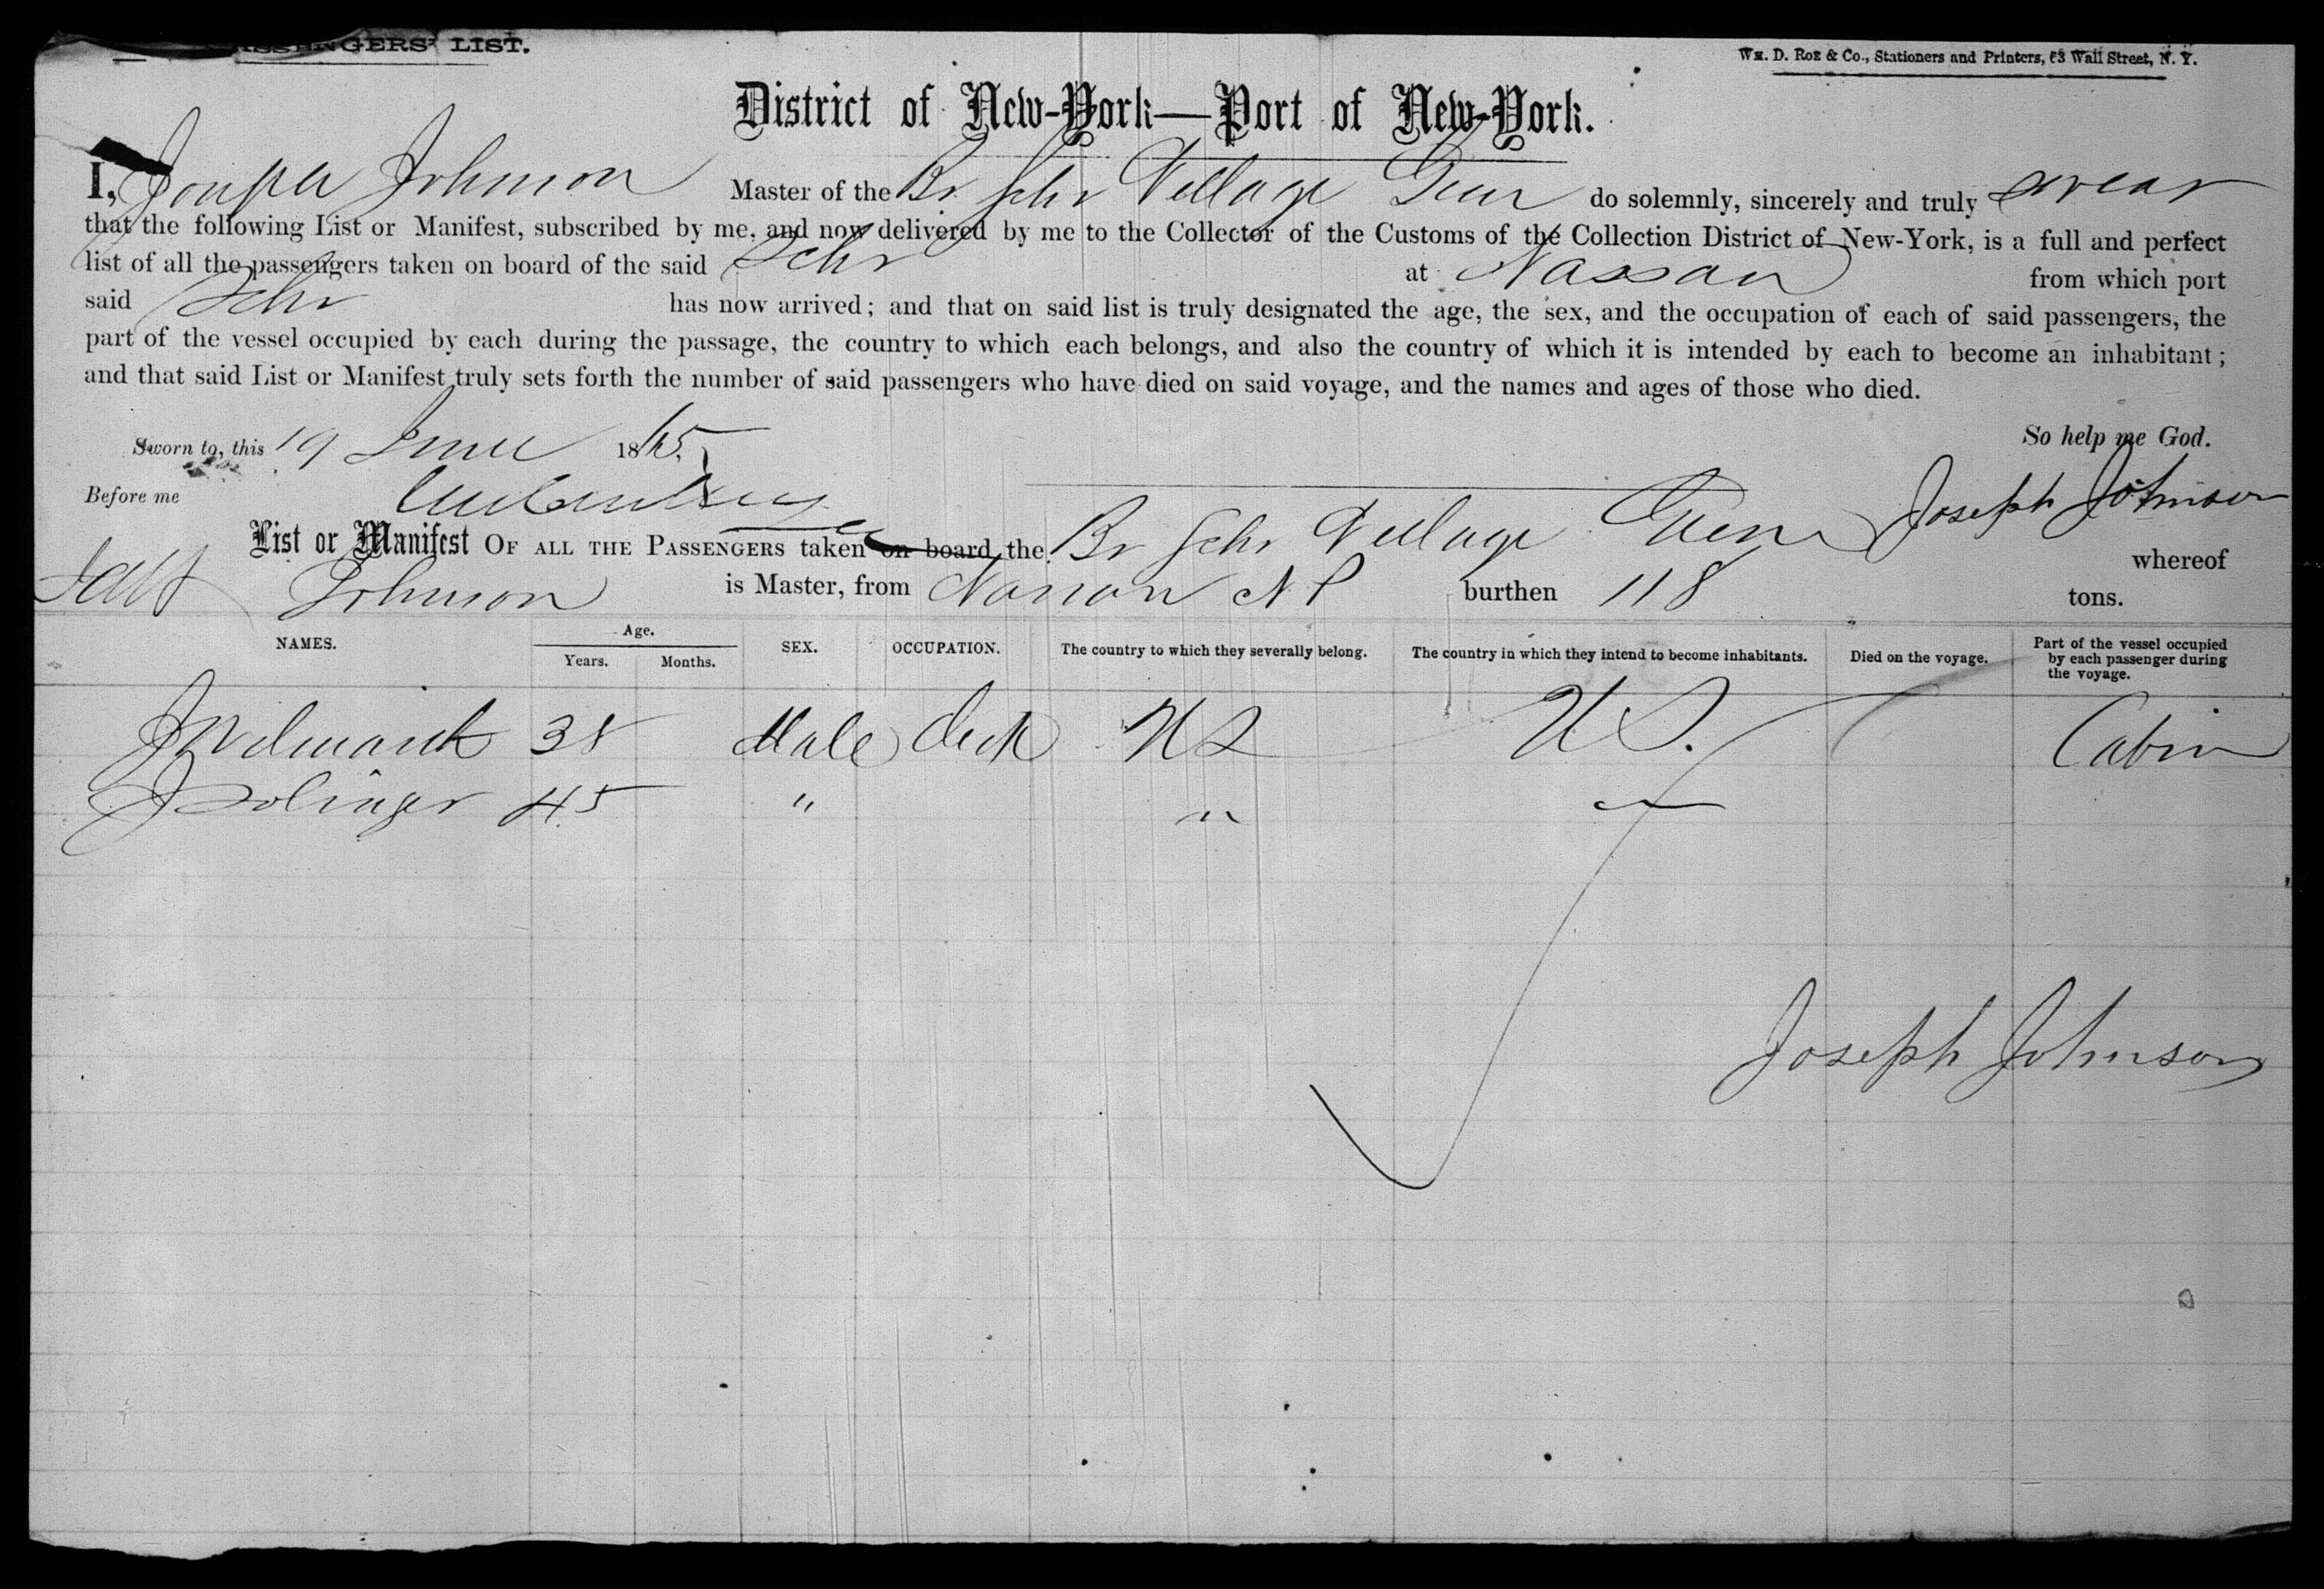 PASSENGERS' LIST.
Wm. D. Roe & Co., Stationers and Printers, 53 Wall Street, N. Y.
District of New-York—Port of New-York.
I, Joseph Johnson Master of the Br Schr Village Queen do solemnly, sincerely and truly swear
that the following List or Manifest, subscribed by me, and now delivered by me to the Collector of the Customs of the Collection District of New-York, is a full and perfect
list of all the passengers taken on board of the said Schr at Nassau from which port
said Schr has now arrived; and that on said list is truly designated the age, the sex, and the occupation of each of said passengers, the
part of the vessel occupied by each during the passage, the country to which each belongs, and also the country of which it is intended by each to become an inhabitant;
and that said List or Manifest truly sets forth the number of said passengers who have died on said voyage, and the names and ages of those who died.
So help me God.
Sworn to, this 19 June 1865
Before me
Joseph Johnson
List or Manifest OF ALL THE PASSENGERS taken on board the Br Schr Village Queen whereof
Johnson is Master, from Nassau N P burthen 118 tons.
NAMES. Age. Years. Months. SEX. OCCUPATION. The country to which they severally belong. The country in which they intend to become inhabitants. Died on the voyage. Part of the vessel occupied by each passenger during the voyage.
38 Male US U S. Cabin
45 " "
Joseph Johnson